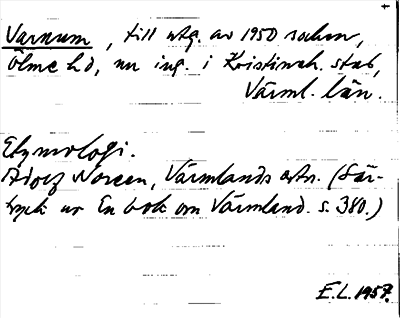 Varnum, till utg. av 1950 socken,
Ölme hd, nu ing. i Kristineh. stad,
Värml. län.
Etymologi.
Adolf Noreen, Värmlands ortn. (Sär-
tryck ur En bok om Värmland. s. 380.)
E.L. 1957.